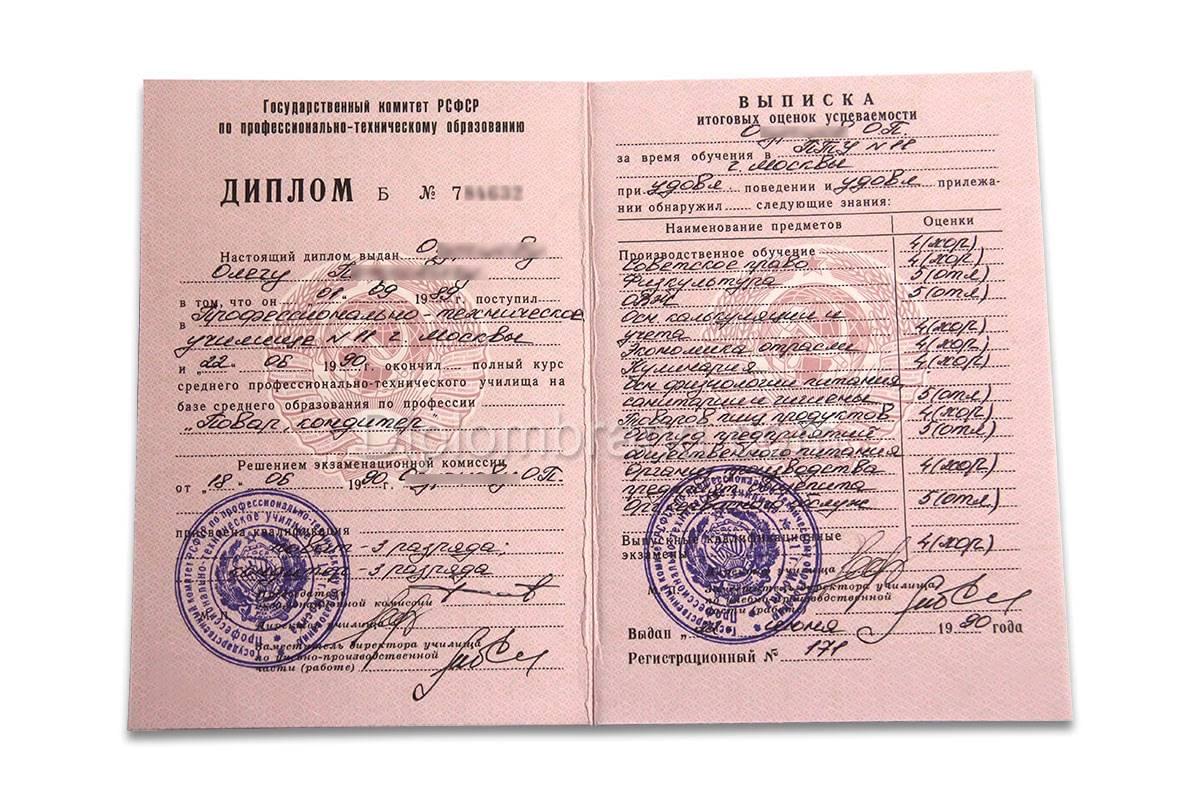 Государственный комитет РСФСР
по профессионально-техническому образованию
ДИПЛОМ Б № 7
Настоящий диплом выдан
Олегу
в том, что он 01 " 09 1989 г. поступил
в Профессионально техническое
училище №11 г. Москвы
и „22" 06 1990 г. окончил полный курс
среднего профессионально-технического училища на
базе среднего образования по профессии
„Повар, кондитер"
Решением экзаменационной комиссии
от „18" 06 1990 О.П.
присвоена квалификация
повар - 3 разряда;
кондитер - 3 разряда
Председатель
экзаменационной комиссии
Директор училища
Заместитель директора училища
по учебно-производственной
части (работе)
ВЫПИСКА
итоговых оценок успеваемости
О.П.
за время обучения в ПТУ №11
г. Москвы
при удовл. поведении и удовл прилежа-
нии обнаружил следующие знания:
Наименование предметов Оценки
Производственное обучение 4(хор)
Советское право 4(хор.)
Физкультура 5(отл)
ОВЖ 5(отл)
Осн калькуляции и
учета 4(хор)
Экономика отрасли 4(хор)
Кулинария 4(хор)
Осн физиологии питания
санитарии и гигиены 5(отл)
Товаров пищ продуктов 4(хор)
Оборуд предприятий 5(отл)
общественного питания
Органия производства 4(хор)
предприят общепита
5(отл)
Выпускные квалификационные
экзамены 4(хор)
Директор училища
М. Заместитель директора училища
по учебно-производственной
части (работе)
Выдан „22" июня 1990 года
Регистрационный № 171